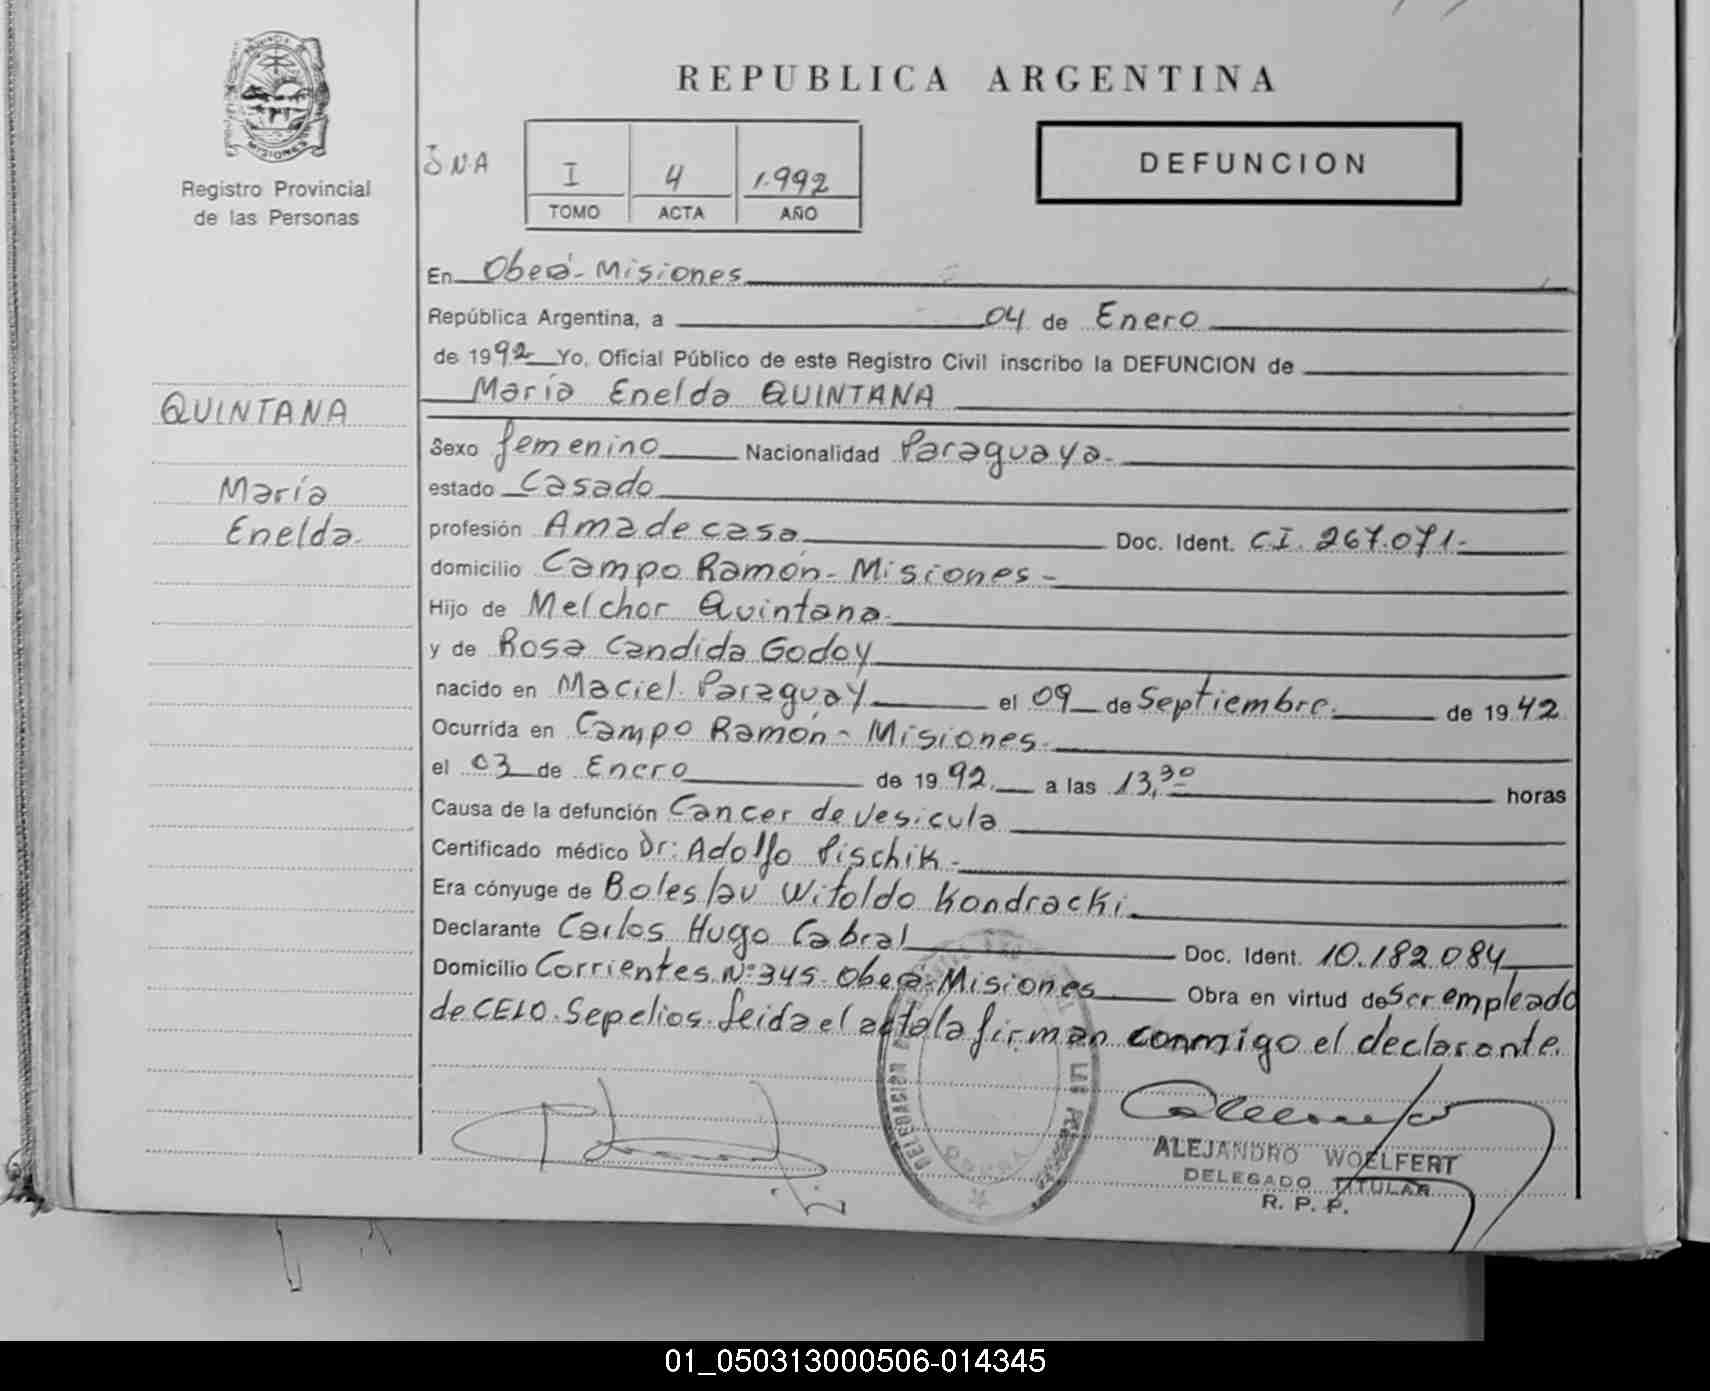 REPUBLICA ARGENTINA
PROVINCIA DE
MISIONES
Registro Provincial
de las Personas
I 4 1.992
TOMO ACTA AÑO
DEFUNCION
QUINTANA
María
Enelda.
En Oberá - Misiones
República Argentina, a 04 de Enero
de 1992 Yo, Oficial Público de este Registro Civil inscribo la DEFUNCION de
María Enelda QUINTANA
Sexo femenino Nacionalidad Paraguaya.
estado Casado
profesión Ama de casa Doc. Ident. C.I. 267.071.-
domicilio Campo Ramón - Misiones -
Hijo de Melchor Quintana.
y de Rosa Candida Godoy
nacido en Maciel. Paraguay el 09 de Septiembre. de 1942
Ocurrida en Campo Ramón - Misiones.
el 03 de Enero de 1992. a las 13,30 horas
Causa de la defunción Cancer de vesicula
Certificado médico Dr: Adolfo Pischik -
Era cónyuge de Boleslav Witoldo Kondracki.
Declarante Carlos Hugo Cabral Doc. Ident. 10.182.084
Domicilio Corrientes Nº 345- Oberá - Misiones Obra en virtud de Ser empleado
de CELO. Sepelios. Leida el acta la firman conmigo el declarante.
DELEGACION
OBERA
ALEJANDRO WOELFERT
DELEGADO TITULAR
R. P. P.
01_050313000506-014345